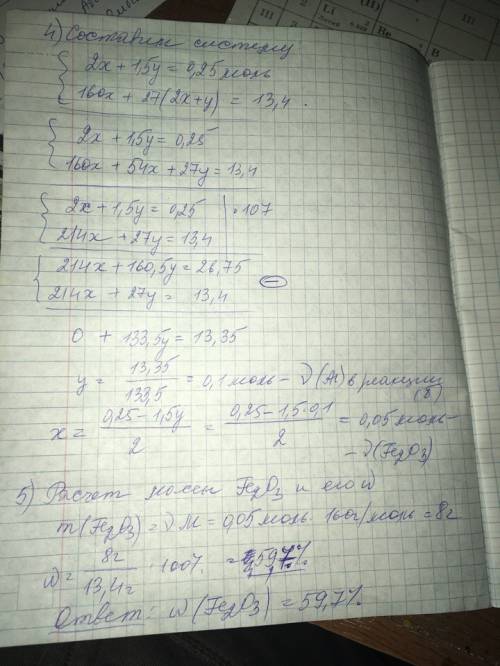 4) Составим систему
2x + 1,5y = 0,25 моль
160x + 27(2x+y) = 13,4.
2x + 1,5y = 0,25
160x + 54x + 27y = 13,4
2x + 1,5y = 0,25 | · 107
214x + 27y = 13,4
214x + 160,5y = 26,75
214x + 27y = 13,4 −
0 + 133,5y = 13,35
y = 13,35 / 133,5 = 0,1 моль – ν(Al) в реакции (б)
x = 0,25 – 1,5y / 2 = 0,25 – 1,5·0,1 / 2 = 0,05 моль –
– ν(Fe2O3)
5) Расчет массы Fe2O3 и его ω
m(Fe2O3) = νM = 0,05 моль · 160г/моль = 8г
ω = 8г / 13,4г · 100% = 59,7%
Ответ: ω(Fe2O3) = 59,7%.
III
Li
Be
III
B